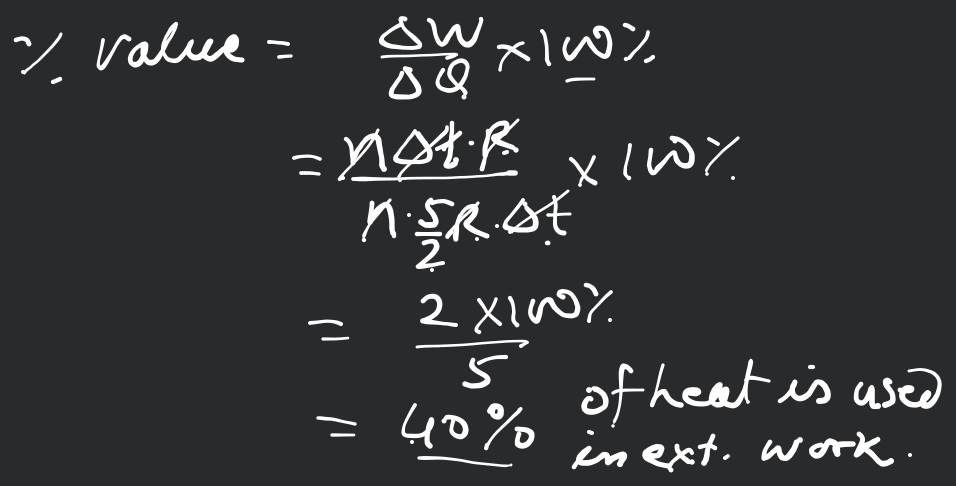 % value = ΔW/ΔQ × 100%
= nΔt·R / n·5/2 R·Δt × 100%
= 2 × 100% / 5
= 40% of heat is used
in ext. work.